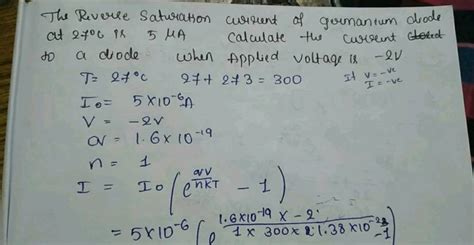 The Reverse Saturation current of germanium diode
at 27°C is 5 μA Calculate the current
to a diode when Applied voltage is -2V
T= 27°C 27+273=300 If V=-ve
I=-ve
I₀= 5×10⁻⁶A
V = -2V
qv = 1.6×10⁻¹⁹
n = 1
I = I₀ (e^(qv/nKT) - 1)
= 5×10⁻⁶ (e^(1.6×10⁻¹⁹ × -2 / 1 × 300 × 1.38×10⁻²³) -1)